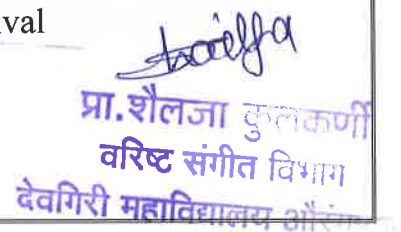 ival
प्रा.शैलजा कुलकर्णी
वरिष्ट संगीत विभाग
देवगिरी महाविद्यालय